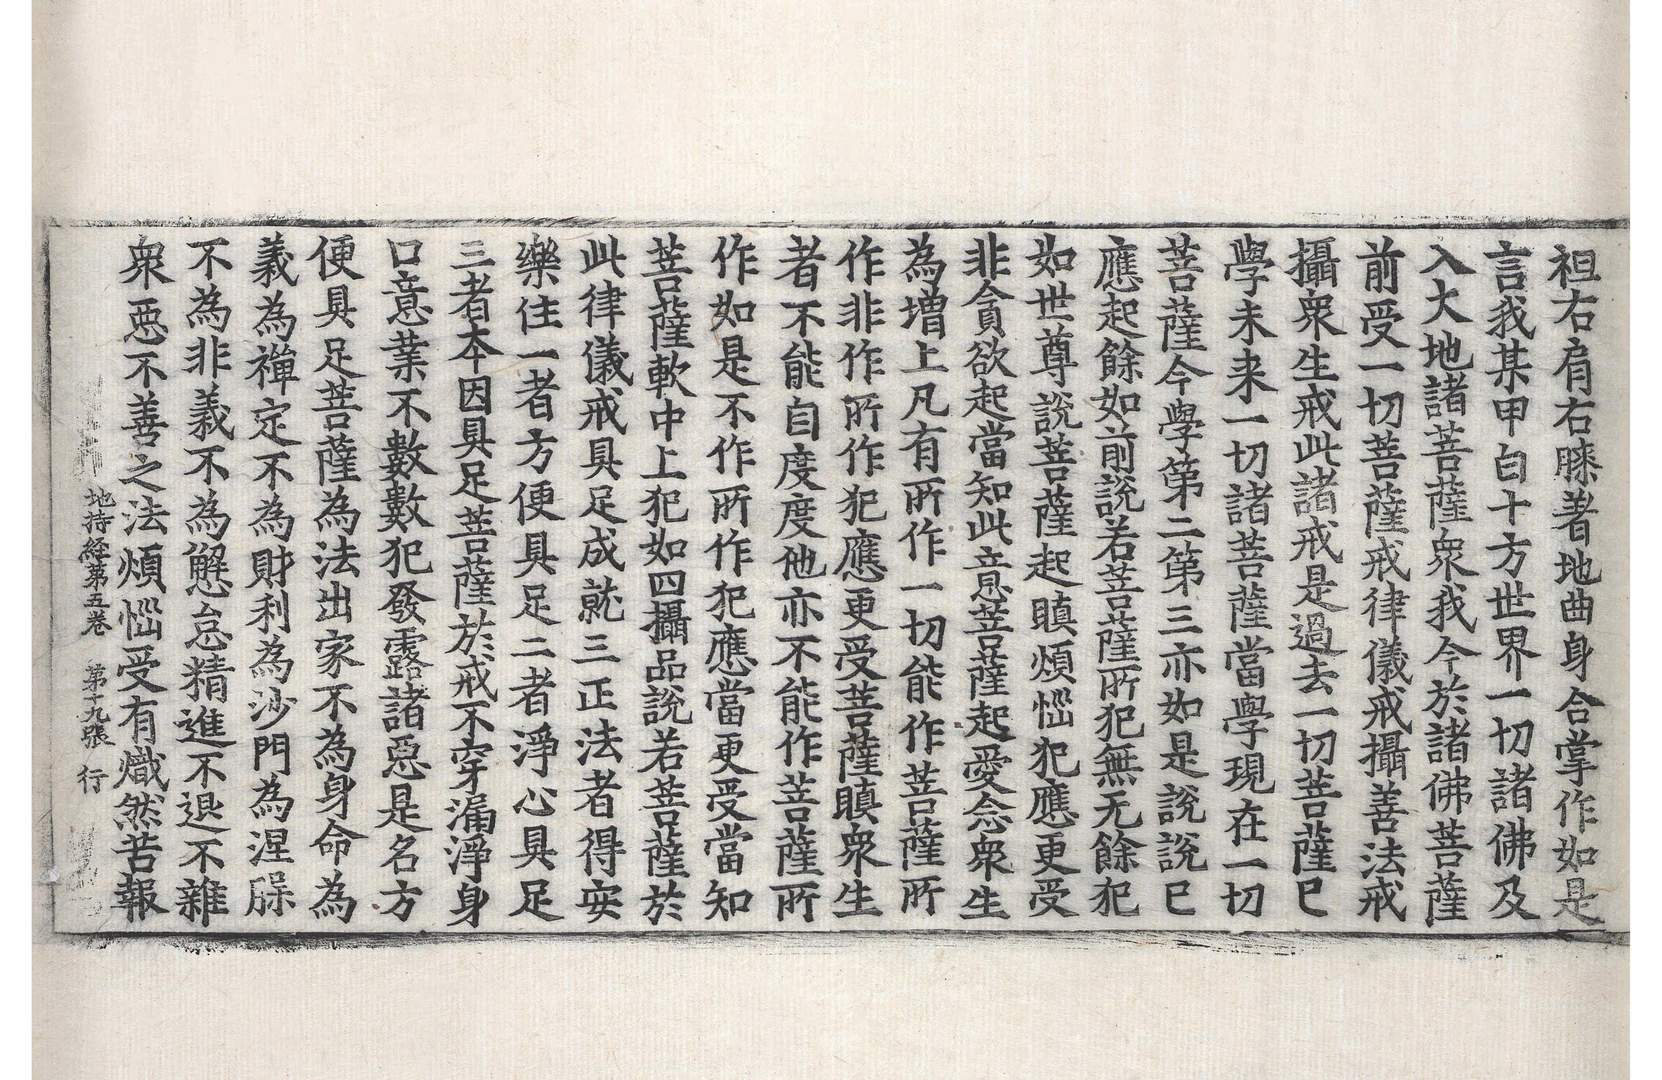 袒右肩右膝著地曲身合掌作如是
言我某甲白十方世界一切諸佛及
入大地諸菩薩衆我今於諸佛菩薩
前受一切菩薩戒律儀戒攝善法戒
攝衆生戒此諸戒是過去一切菩薩已
學未来一切諸菩薩當學現在一切
菩薩今學第二第三亦如是說說已
應起餘如前說若菩薩所犯無无餘犯
如世尊說菩薩起瞋煩惱犯應更受
非貪欲起當知此意菩薩起愛念衆生
為增上凡有所作一切能作菩薩所
作非作所作犯應更受菩薩瞋衆生
者不能自度度他亦不能作菩薩所
作如是不作所作犯應當更受當知
菩薩軟中上犯如四攝品說若菩薩於
此律儀戒具足成就三正法者得安
樂住一者方便具足二者淨心具足
三者本因具足菩薩於戒不穿漏淨身
口意業不數數犯發露諸惡是名方
便具足菩薩為法出家不為身命為
義為禪定不為財利為沙門為涅槃
不為非義不為懈怠精進不退不雜
衆惡不善之法煩惱受有熾然苦報
地持経第五巻 第十九張 行